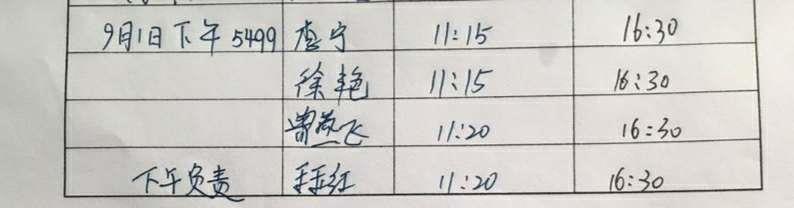 9月1日下午5499 李宁 11:15 16:30
徐艳 11:15 16:30
曾燕飞 11:20 16:30
下午负责 红 11:20 16:30